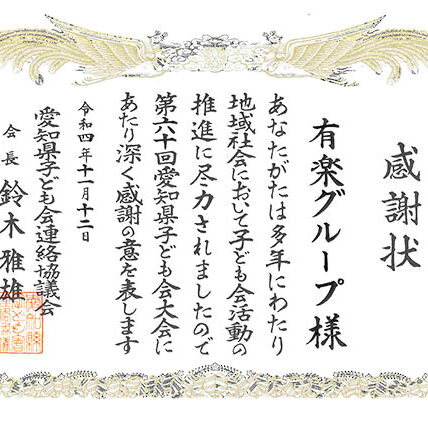 感謝状
有楽グループ様
あなたがたは多年にわたり
地域社会において子ども会活動の
推進に尽力されましたので
第六十回愛知県子ども会大会に
あたり深く感謝の意を表します
令和四年十一月十二日
愛知県子ども会連絡協議会
会長 鈴木雅雄